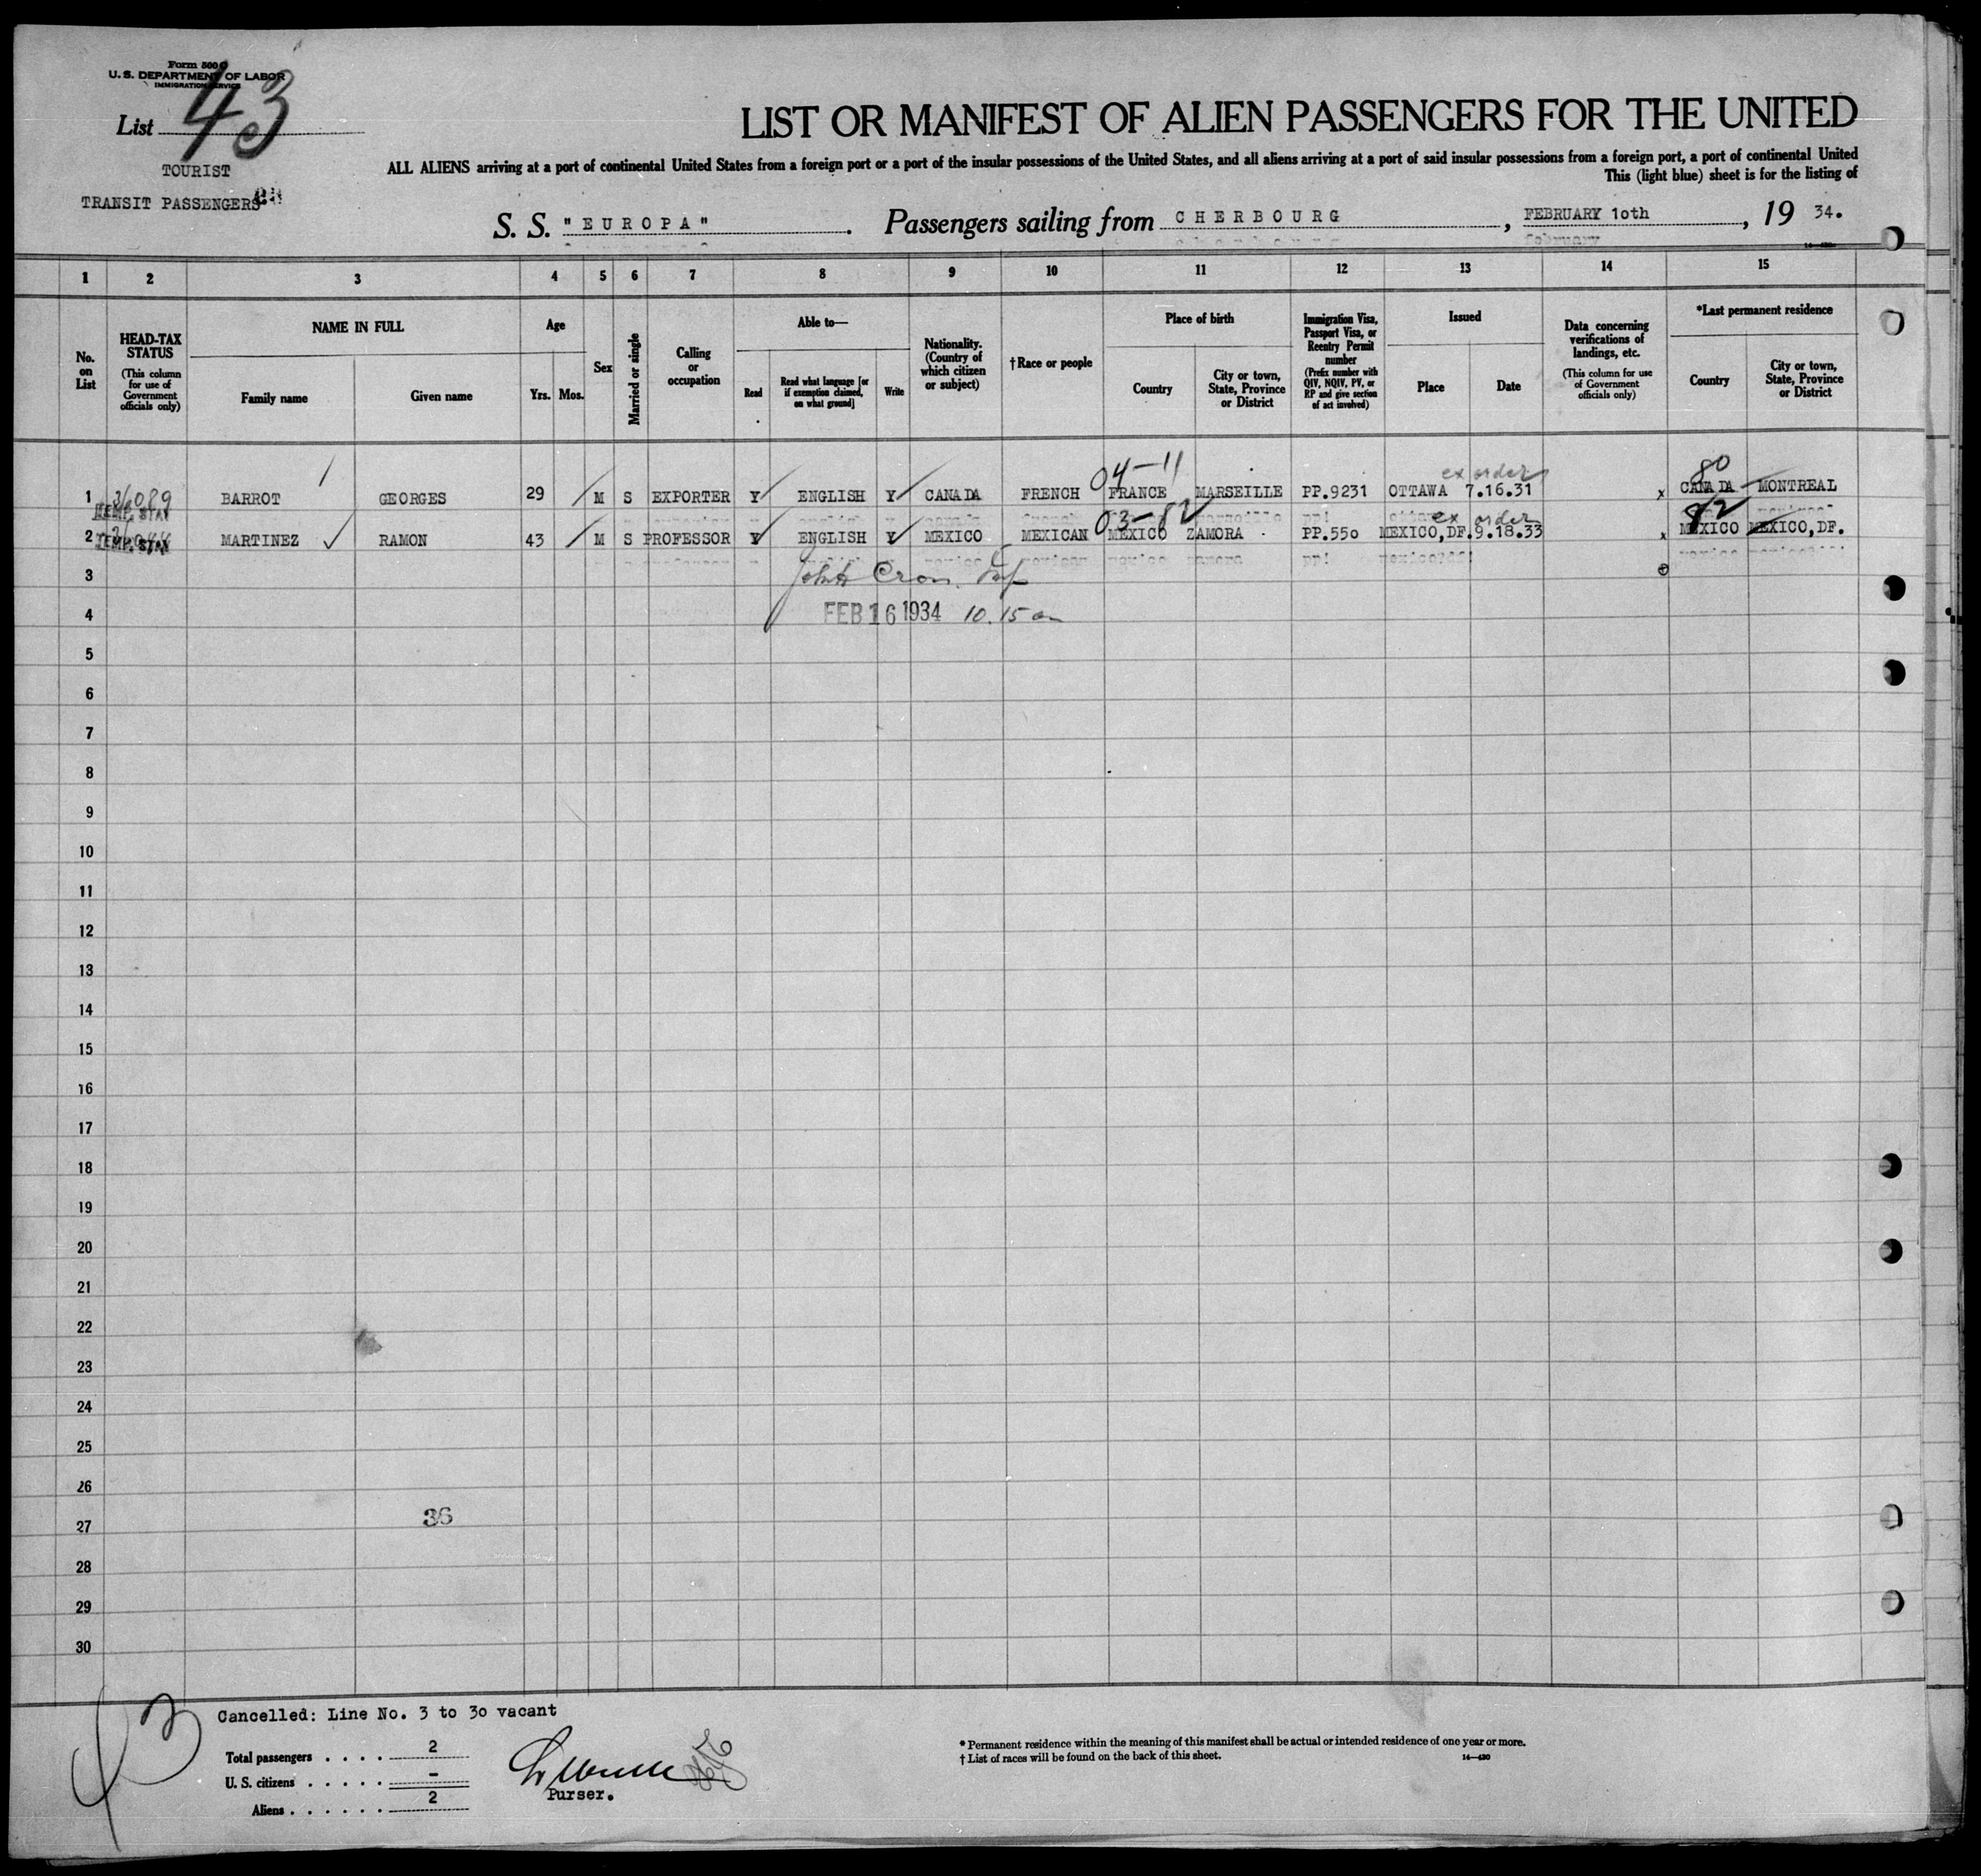 Form 500 C
U. S. DEPARTMENT OF LABOR
IMMIGRATION SERVICE
List 43
TOURIST
TRANSIT PASSENGERS
LIST OR MANIFEST OF ALIEN PASSENGERS FOR THE UNITED
ALL ALIENS arriving at a port of continental United States from a foreign port or a port of the insular possessions of the United States, and all aliens arriving at a port of said insular possessions from a foreign port, a port of continental United
This (light blue) sheet is for the listing of
S. S. "EUROPA". Passengers sailing from CHERBOURG, FEBRUARY 10th, 19 34.
1 2 3 4 5 6 7 8 9 10 11 12 13 14 15
No. on List
HEAD-TAX STATUS (This column for use of Government officials only)
NAME IN FULL
Family name Given name
Age
Yrs. Mos.
Sex
Married or single
Calling or occupation
Able to—
Read Read what language [or if exemption claimed, on what ground] Write
Nationality. (Country of which citizen or subject)
†Race or people
Place of birth
Country City or town, State, Province or District
Immigration Visa, Passport Visa, or Reentry Permit number (Prefix number with QIV, NQIV, PV, or RP and give section of act involved)
Issued
Place Date
Data concerning verifications of landings, etc. (This column for use of Government officials only)
*Last permanent residence
Country City or town, State, Province or District
04-11 ex order 80
1 BARROT GEORGES 29 M S EXPORTER Y ENGLISH Y CANADA FRENCH FRANCE MARSEILLE PP.9231 OTTAWA 7.16.31 x CANADA MONTREAL
TEMP. STAY
03-82 ex order 82
2 MARTINEZ RAMON 43 M S PROFESSOR Y ENGLISH Y MEXICO MEXICAN MEXICO ZAMORA PP.550 MEXICO,DF.9.18.33 x MEXICO MEXICO,DF.
TEMP. STAY
3
4 FEB 16 1934 10.15 am
5
6
7
8
9
10
11
12
13
14
15
16
17
18
19
20
21
22
23
24
25
26
27 36
28
29
30
43
Cancelled: Line No. 3 to 30 vacant
Total passengers . . . . 2
U. S. citizens . . . . . -
Aliens . . . . . . 2
Purser.
* Permanent residence within the meaning of this manifest shall be actual or intended residence of one year or more.
† List of races will be found on the back of this sheet. 14—430